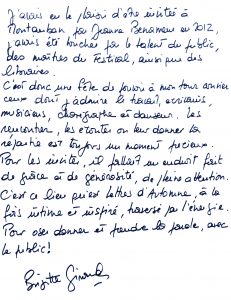 J'avais eu le plaisir d'être invitée à
Montauban par Jeanne Benameur en 2012,
j'avais été touchée par le talent du public,
des maîtres du Festival, ainsi que des
libraires.
C'est donc une fête de pouvoir à mon tour convier
ceux dont j'admire le travail, écrivains,
musiciens, chorégraphe et danseur. Les
rencontrer, les écouter ou leur donner la
répartie est toujours un moment précieux.
Pour les invités, il fallait un endroit fait
de grâce et de générosité, de pleine attention.
C'est ce lieu qu'est Lettres d'Automne, à la
fois intime et inspiré, traversé par l'énergie.
Pour oser donner et prendre la parole, avec
le public !
Brigitte Giraud